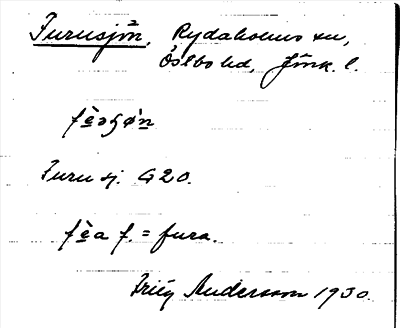 Furusjön, Rydaholms sn,
Östbo hd, Jönk. l.
fèəʒǿn
Furu sj. G20.
fèa f. = fura.
Andersson 1930.